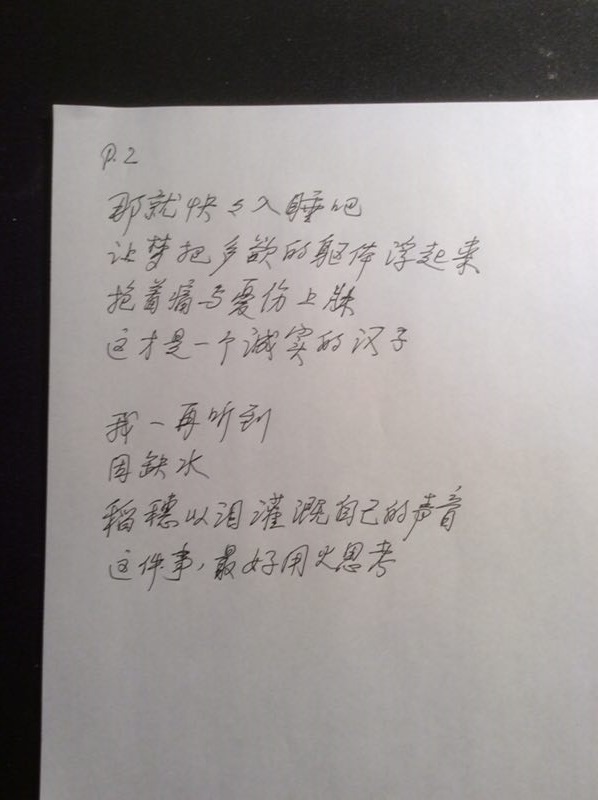 P.2
那就快々入睡吧
让梦把多欲的躯体浮起来
抱着痛与忧伤上床
这才是一个诚实的汉子
我一再听到
因缺水
稻穗以泪灌溉自己的声音
这件事，最好用火思考